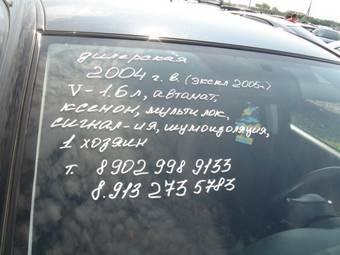 дилерская
2004 г.в. (экспл 2005г)
V-1.6 л, автомат,
ксенон, мультилок,
сигнал-ия, шумоизоляция,
1 хозяин
т. 8902 998 9133
8.913 273 5783